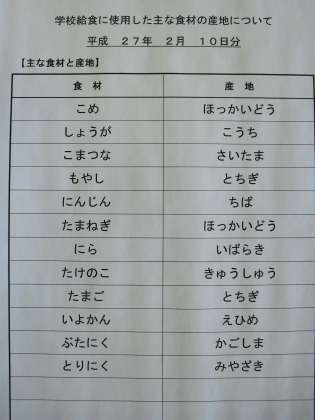 学校給食に使用した主な食材の産地について
平成 27年 2月 10日分
【主な食材と産地】
食 材 産 地
こめ ほっかいどう
しょうが こうち
こまつな さいたま
もやし とちぎ
にんじん ちば
たまねぎ ほっかいどう
にら いばらき
たけのこ きゅうしゅう
たまご とちぎ
いよかん えひめ
ぶたにく かごしま
とりにく みやざき